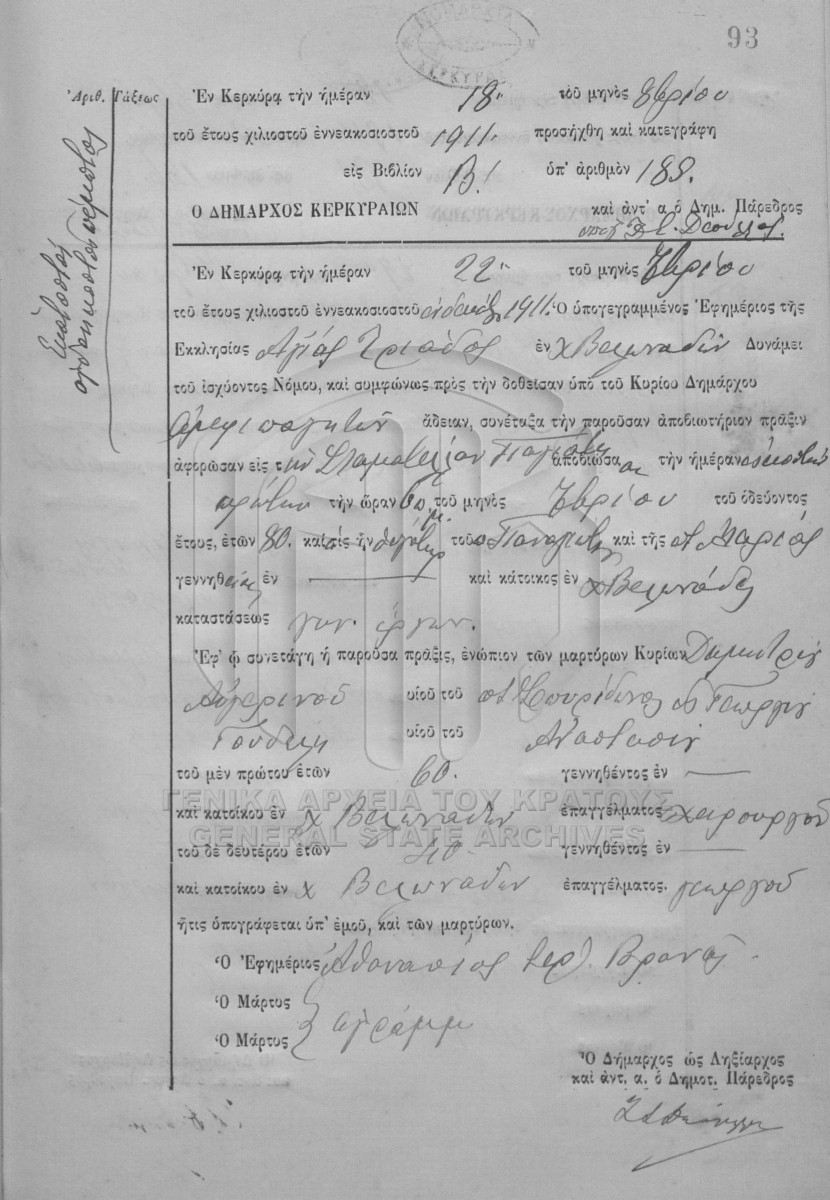 93
ΚΕΡΚΥΡΑ
Ἀριθ. Τάξεως
Ἑκατοστὸν
ὀγδοηκοστὸν πέμπτον
Ἐν Κερκύρᾳ τὴν ἡμέραν 18 τοῦ μηνὸς 8βρίου
τοῦ ἔτους χιλιοστοῦ ἐννεακοσιοστοῦ 1911 προσήχθη καὶ κατεγράφη
εἰς Βιβλίον Β! ὑπ' ἀριθμὸν 185.
Ο ΔΗΜΑΡΧΟΣ ΚΕΡΚΥΡΑΙΩΝ καὶ ἀντ' α. ὁ Δημ. Πάρεδρος
Ἐν Κερκύρᾳ τὴν ἡμέραν 22 τοῦ μηνὸς 7βρίου
τοῦ ἔτους χιλιοστοῦ ἐννεακοσιοστοῦ 1911. Ὁ ὑπογεγραμμένος Ἐφημέριος τῆς
Ἐκκλησίας Ἁγίας Τριάδος ἐν χ Βελωνάδων Δυνάμει
τοῦ ἰσχύοντος Νόμου, καὶ συμφώνως πρὸς τὴν δοθεῖσαν ὑπὸ τοῦ Κυρίου Δημάρχου
ἄδειαν, συνέταξα τὴν παροῦσαν ἀποβιωτήριον πρᾶξιν
ἀφορῶσαν εἰς τὴν Σταματέλλαν ἀποβιώσασαν τὴν ἡμέραν εἰκοστὴν
πρώτην τὴν ὥραν 6 π.μ. τοῦ μηνὸς 7βρίου τοῦ ὁδεύοντος
ἔτους, ἐτῶν 80. καὶ εἰς ἦν θυγάτηρ τοῦ π Παναγιώτη καὶ τῆς π Μαρίας
γεννηθεῖσα ἐν — καὶ κάτοικος ἐν χ Βελωνάδες
καταστάσεως γυν. ἔργων.
Ἐφ' ᾧ συνετάγη ἡ παροῦσα πρᾶξις, ἐνώπιον τῶν μαρτύρων Κυρίων Δημητρίου
Αὐγερινοῦ υἱοῦ τοῦ π Σπυρίδωνος καὶ Γεωργίου
Γουδέλη υἱοῦ τοῦ Ἀναστασίου
τοῦ μὲν πρώτου ἐτῶν 60. γεννηθέντος ἐν —
καὶ κατοίκου ἐν χ Βελωνάδων ἐπαγγέλματος χειρουργοῦ
τοῦ δὲ δευτέρου ἐτῶν 40 γεννηθέντος ἐν —
καὶ κατοίκου ἐν χ Βελωνάδων ἐπαγγέλματος. γεωργοῦ
ἥτις ὑπογράφεται ὑπ' ἐμοῦ, καὶ τῶν μαρτύρων.
Ὁ Ἐφημέριος Ἀθανάσιος ἱερ. Βρανᾶς
Ὁ Μάρτυς
Ὁ Μάρτυς ἀγράμμ
Ὁ Δήμαρχος ὡς Ληξίαρχος
καὶ ἀντ. α. ὁ Δημοτ. Πάρεδρος
ΓΕΝΙΚΑ ΑΡΧΕΙΑ ΤΟΥ ΚΡΑΤΟΥΣ
GENERAL STATE ARCHIVES